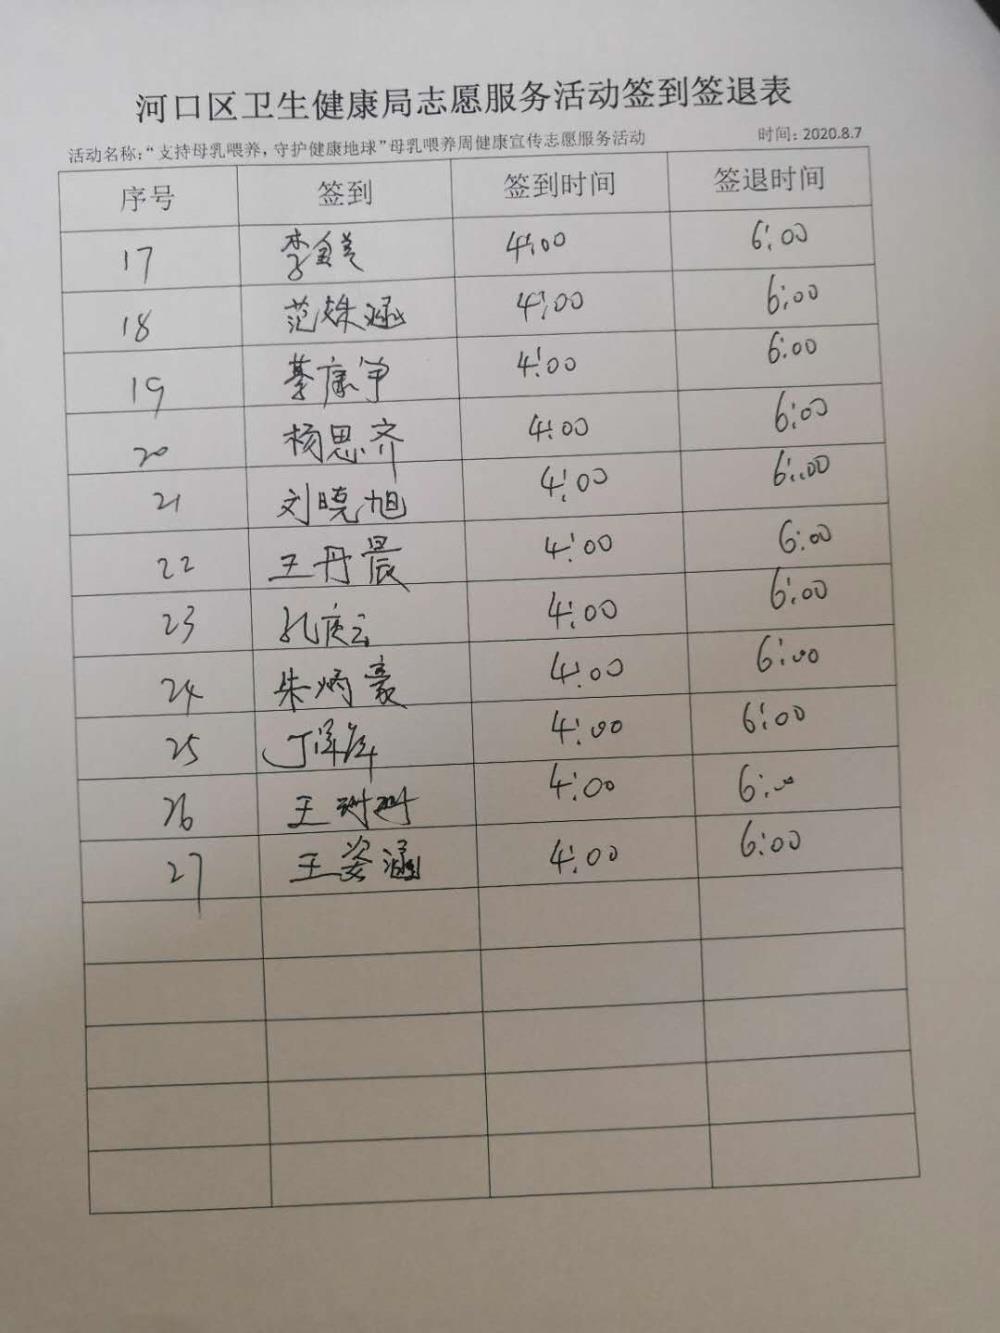 河口区卫生健康局志愿服务活动签到签退表
活动名称:“支持母乳喂养,守护健康地球”母乳喂养周健康宣传志愿服务活动 时间: 2020.8.7
序号 签到 签到时间 签退时间
17 李 4:00 6:00
18 范姝涵 4:00 6:00
19 綦康净 4:00 6:00
20 杨思齐 4:00 6:00
21 刘晓旭 4:00 6:00
22 王丹晨 4:00 6:00
23 孔庆云 4:00 6:00
24 朱炳豪 4:00 6:00
25 丁泽 4:00 6:00
26 王珊珊 4:00 6:00
27 王姿涵 4:00 6:00